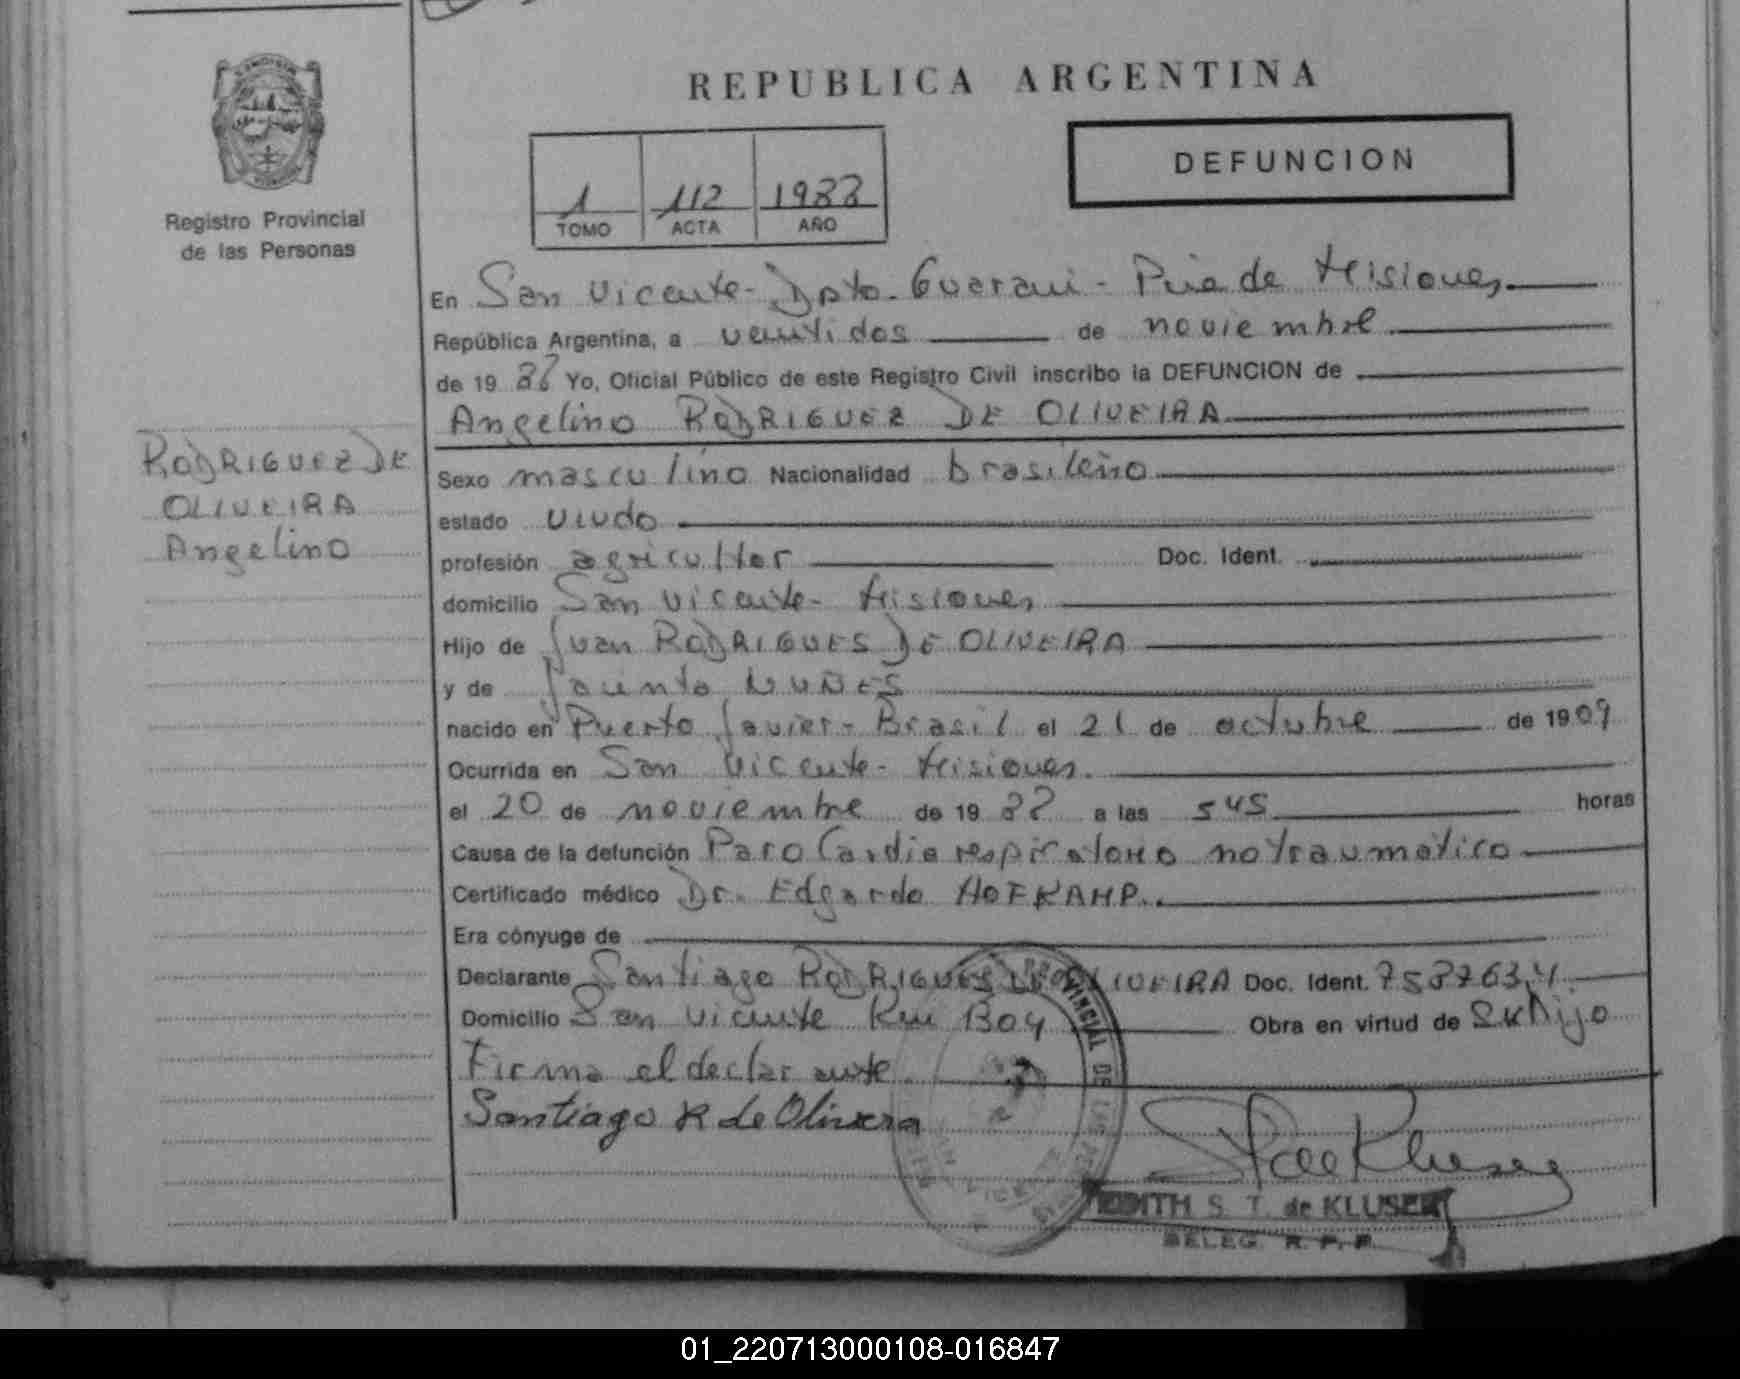 REPUBLICA ARGENTINA
DEFUNCION
1 112 1988
TOMO ACTA AÑO
Registro Provincial
de las Personas
En San Vicente - Dpto. Guarani - Pcia de Misiones
República Argentina, a veintidos de noviembre
de 19 88 Yo, Oficial Público de este Registro Civil inscribo la DEFUNCION de
Angelino RODRIGUEZ DE OLIVEIRA
RODRIGUEZ DE
OLIVEIRA
Angelino
Sexo masculino Nacionalidad brasileño
estado viudo
profesión agricultor Doc. Ident.
domicilio San Vicente - Misiones
Hijo de Juan RODRIGUES DE OLIVEIRA
y de Jacinta NUÑES
nacido en Puerto Javier - Brasil el 21 de octubre de 1909
Ocurrida en San Vicente - Misiones.
el 20 de noviembre de 19 88 a las 5 45 horas
Causa de la defunción Paro Cardio respiratorio no traumático
Certificado médico Dr. Edgardo HOFKAMP.
Era cónyuge de
Declarante Santiago RODRIGUES DE OLIVEIRA Doc. Ident. 7537634
Domicilio San Vicente Km 1304 Obra en virtud de su hijo
Firma el declarante
Santiago R de Olivera
EDITH S. T. de KLUSER
DELEG. R. P. P.
01_220713000108-016847